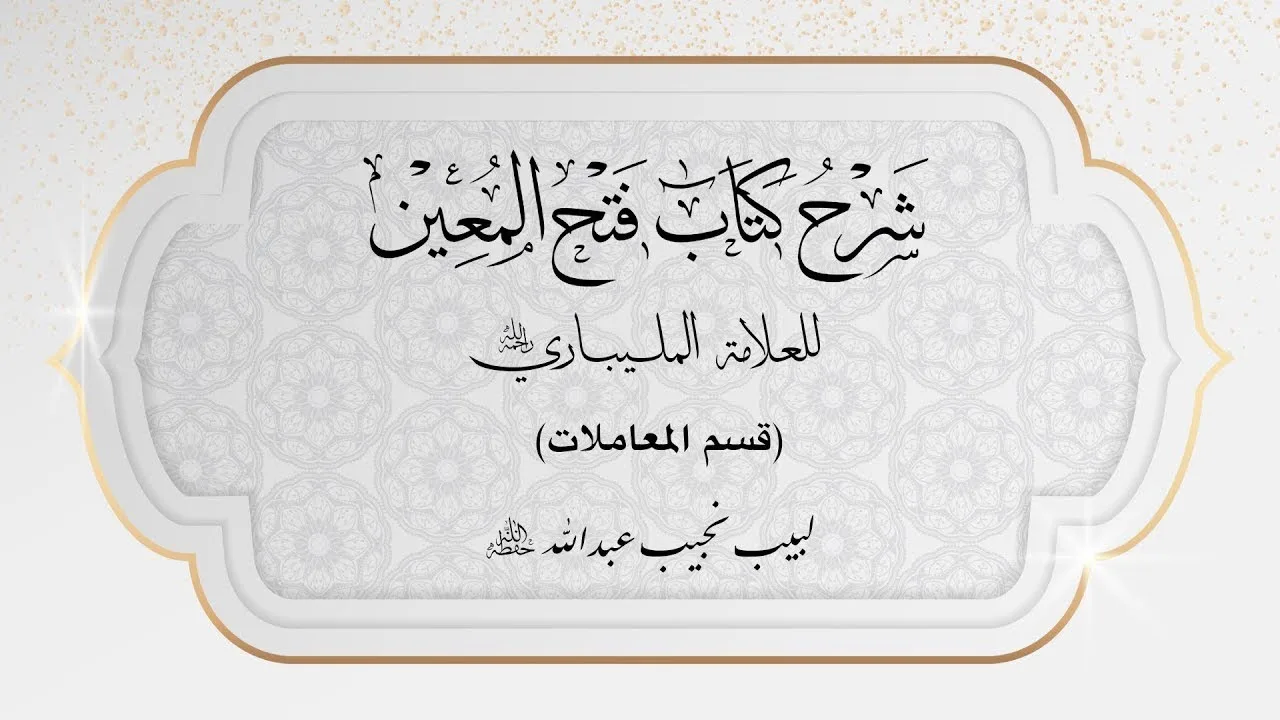 شَرْحُ كِتَابِ فَتْحِ الْمُعِيْنِ
للعلامة المليباري رحمه الله
(قسم المعاملات)
لبيب نجيب عبدالله حفظه الله